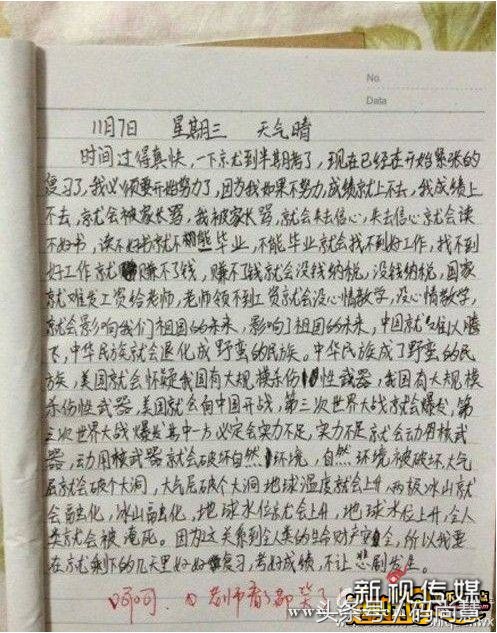 No.
Data
11月7日 星期三 天气晴
时间过得真快，一下就到半期考了，现在已经在开始紧张的
复习了，我必须要开始努力了，因为我如果不努力，成绩就上不去，我成绩上
不去，就会被家长骂，我被家长骂，就会失去信心，失去信心就会读
不好书，读不好书就不能毕业，不能毕业就会找不到好工作，找不到
好工作就赚不了钱，赚不了钱就会没钱纳税，没钱纳税，国家
就难发工资给老师，老师领不到工资就会没心情教学，没心情教学，
就会影响我们祖国的未来，影响了祖国的未来，中国就难以腾
飞，中华民族就会退化成野蛮的民族。中华民族成了野蛮的民
族，美国就会怀疑我国有大规模杀伤性武器，我国有大规模
杀伤性武器，美国就会向中国开战，第三次世界大战就会爆发，第
三次世界大战爆发其中一方必定会实力不足，实力不足就会动用核武
器，动用核武器就会破坏自然环境，自然环境被破坏，大气
层就会破个大洞，大气层破个大洞地球温度就会上升，两极冰山就
会融化，冰山融化，地球水位就会上升，地球水位上升，全人
类就会被淹死。因为这关系到全人类的生命财产安全，所以我要
在就剩下的几天里好好复习，考好成绩，不让悲剧发生。
呵呵， 老师看了都
新视传媒
头条号 码尚慧